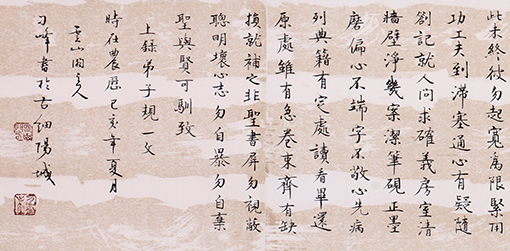 此未終彼勿起寬為限緊用
功工夫到滯塞通心有疑隨
劄記就人問求確義房室清
牆壁淨幾案潔筆硯正墨
磨偏心不端字不敬心先病
列典籍有定處讀看畢還
原處雖有急卷束齊有缺
損就補之非聖書屏勿視蔽
聰明壞心志勿自暴勿自棄
聖與賢可馴致
上錄弟子規一文
時在農歷己亥年夏月
雲山主人
刁峰書於古細陽城